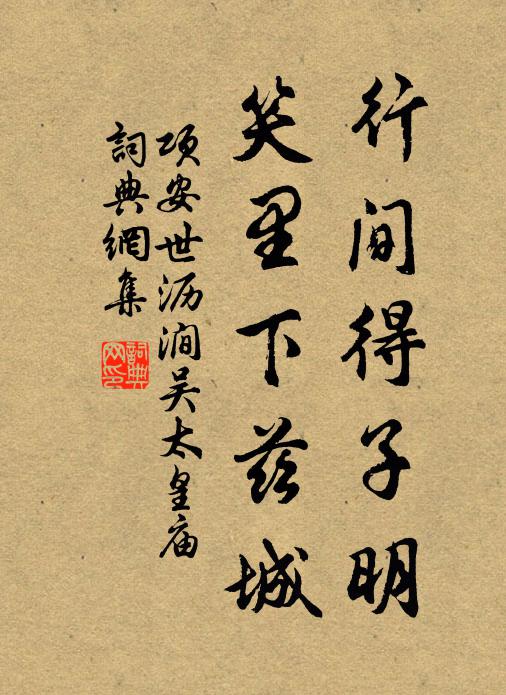 行間得子明
笑里下茲城
项安世沥涧吴太皇庙
詞典網集
詞典网印